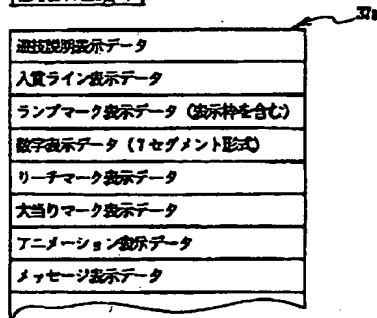 37a
遊技説明表示データ
入賞ライン表示データ
ランプマーク表示データ (表示枠を含む)
数字表示データ (7セグメント形式)
リーチマーク表示データ
大当りマーク表示データ
アニメーション表示データ
メッセージ表示データ